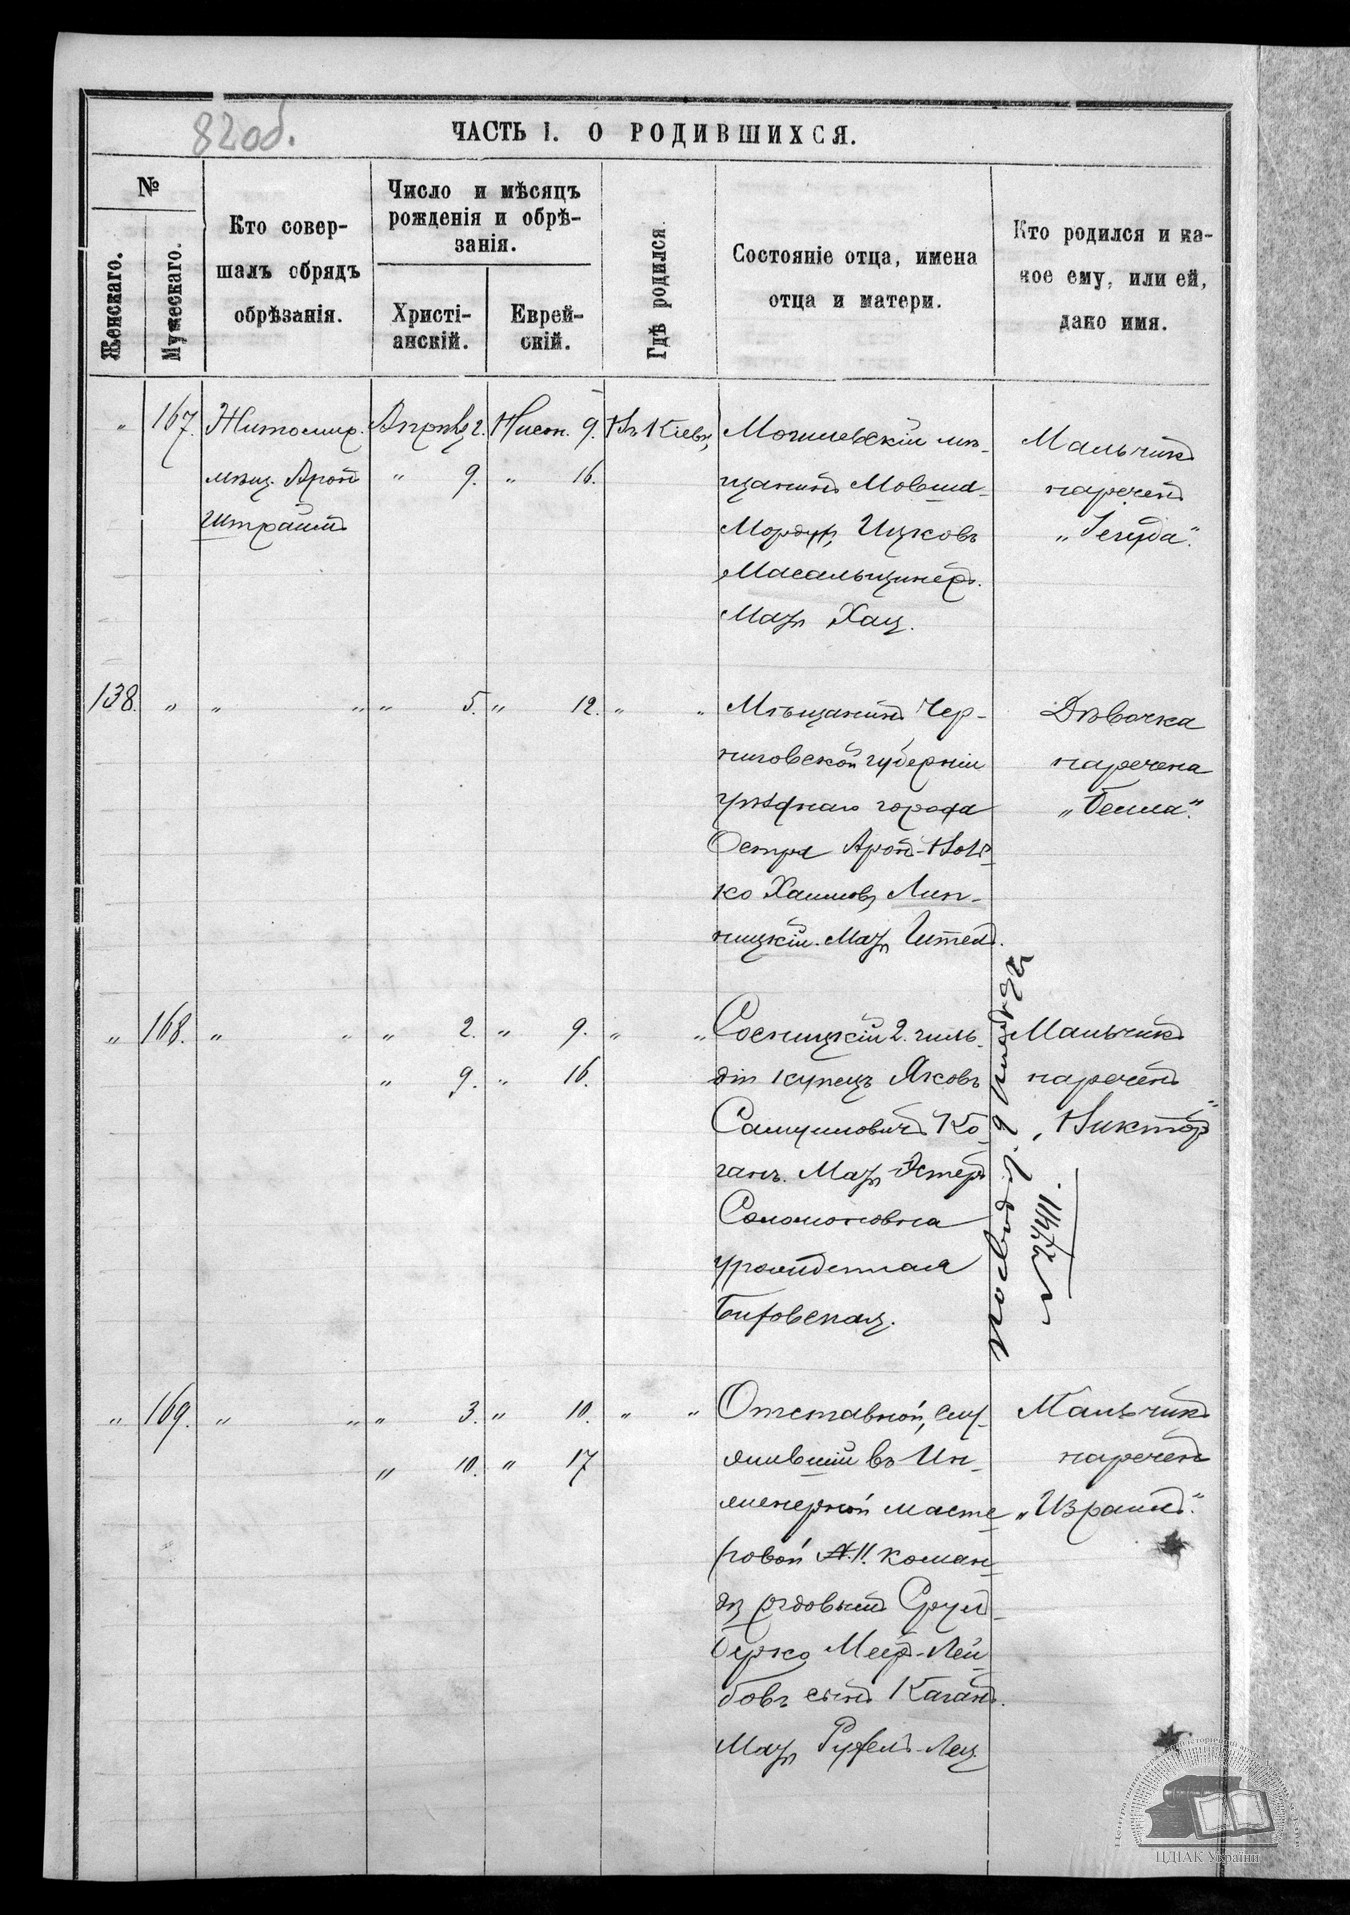 82об.
ЧАСТЬ I. О РОДИВШИХСЯ.
№
Женскаго.
Мужескаго.
Кто совер-
шалъ обрядъ
обрѣзанія.
Число и мѣсяцъ
рожденія и обрѣ-
занія.
Христі-
анскій.
Еврей-
скій.
Гдѣ родился
Состояніе отца, имена
отца и матери.
Кто родился и ка-
кое ему, или ей,
дано имя.
" 167. Житомир. Апрѣль 2. Нисон. 9. Въ Кіевѣ
мѣщ. Арон " 9. " 16.
Штраимъ
Могилевскій мѣ-
щанинъ Мовша-
Мордух Ицковъ
Масальщинеръ.
Мать Хая.
Мальчикъ
нареченъ
„Іегуда".
138. " " " " 5. " 12. " "
Мѣщанинъ Чер-
ниговской губерніи
уѣзднаго города
Остра Аронъ-Воль-
ко Хаимовъ Лип-
ницкій. Мать Гитель.
Дѣвочка
наречена
„Бейла".
" 168. " " " 2. " 9. " "
" 9. " 16.
Сосницкій 2. гиль-
діи купецъ Яковъ
Самуиловичъ Ко-
ганъ. Мать Эстеръ
Соломоновна
урожденная
Биховская.
Мальчикъ
нареченъ
„Викторъ"
№ 27411.
" 169. " " " 3. " 10. " "
" 10. " 17
Отставной, слу-
жившій въ Ин-
женерной масте-
ровой №11. коман-
дѣ рядовый Сруль
Берко Меер-Лей-
бовъ сынъ Каганъ.
Мать Рухель-Лея
Мальчикъ
нареченъ
„Израиль".
ЦДІАК України